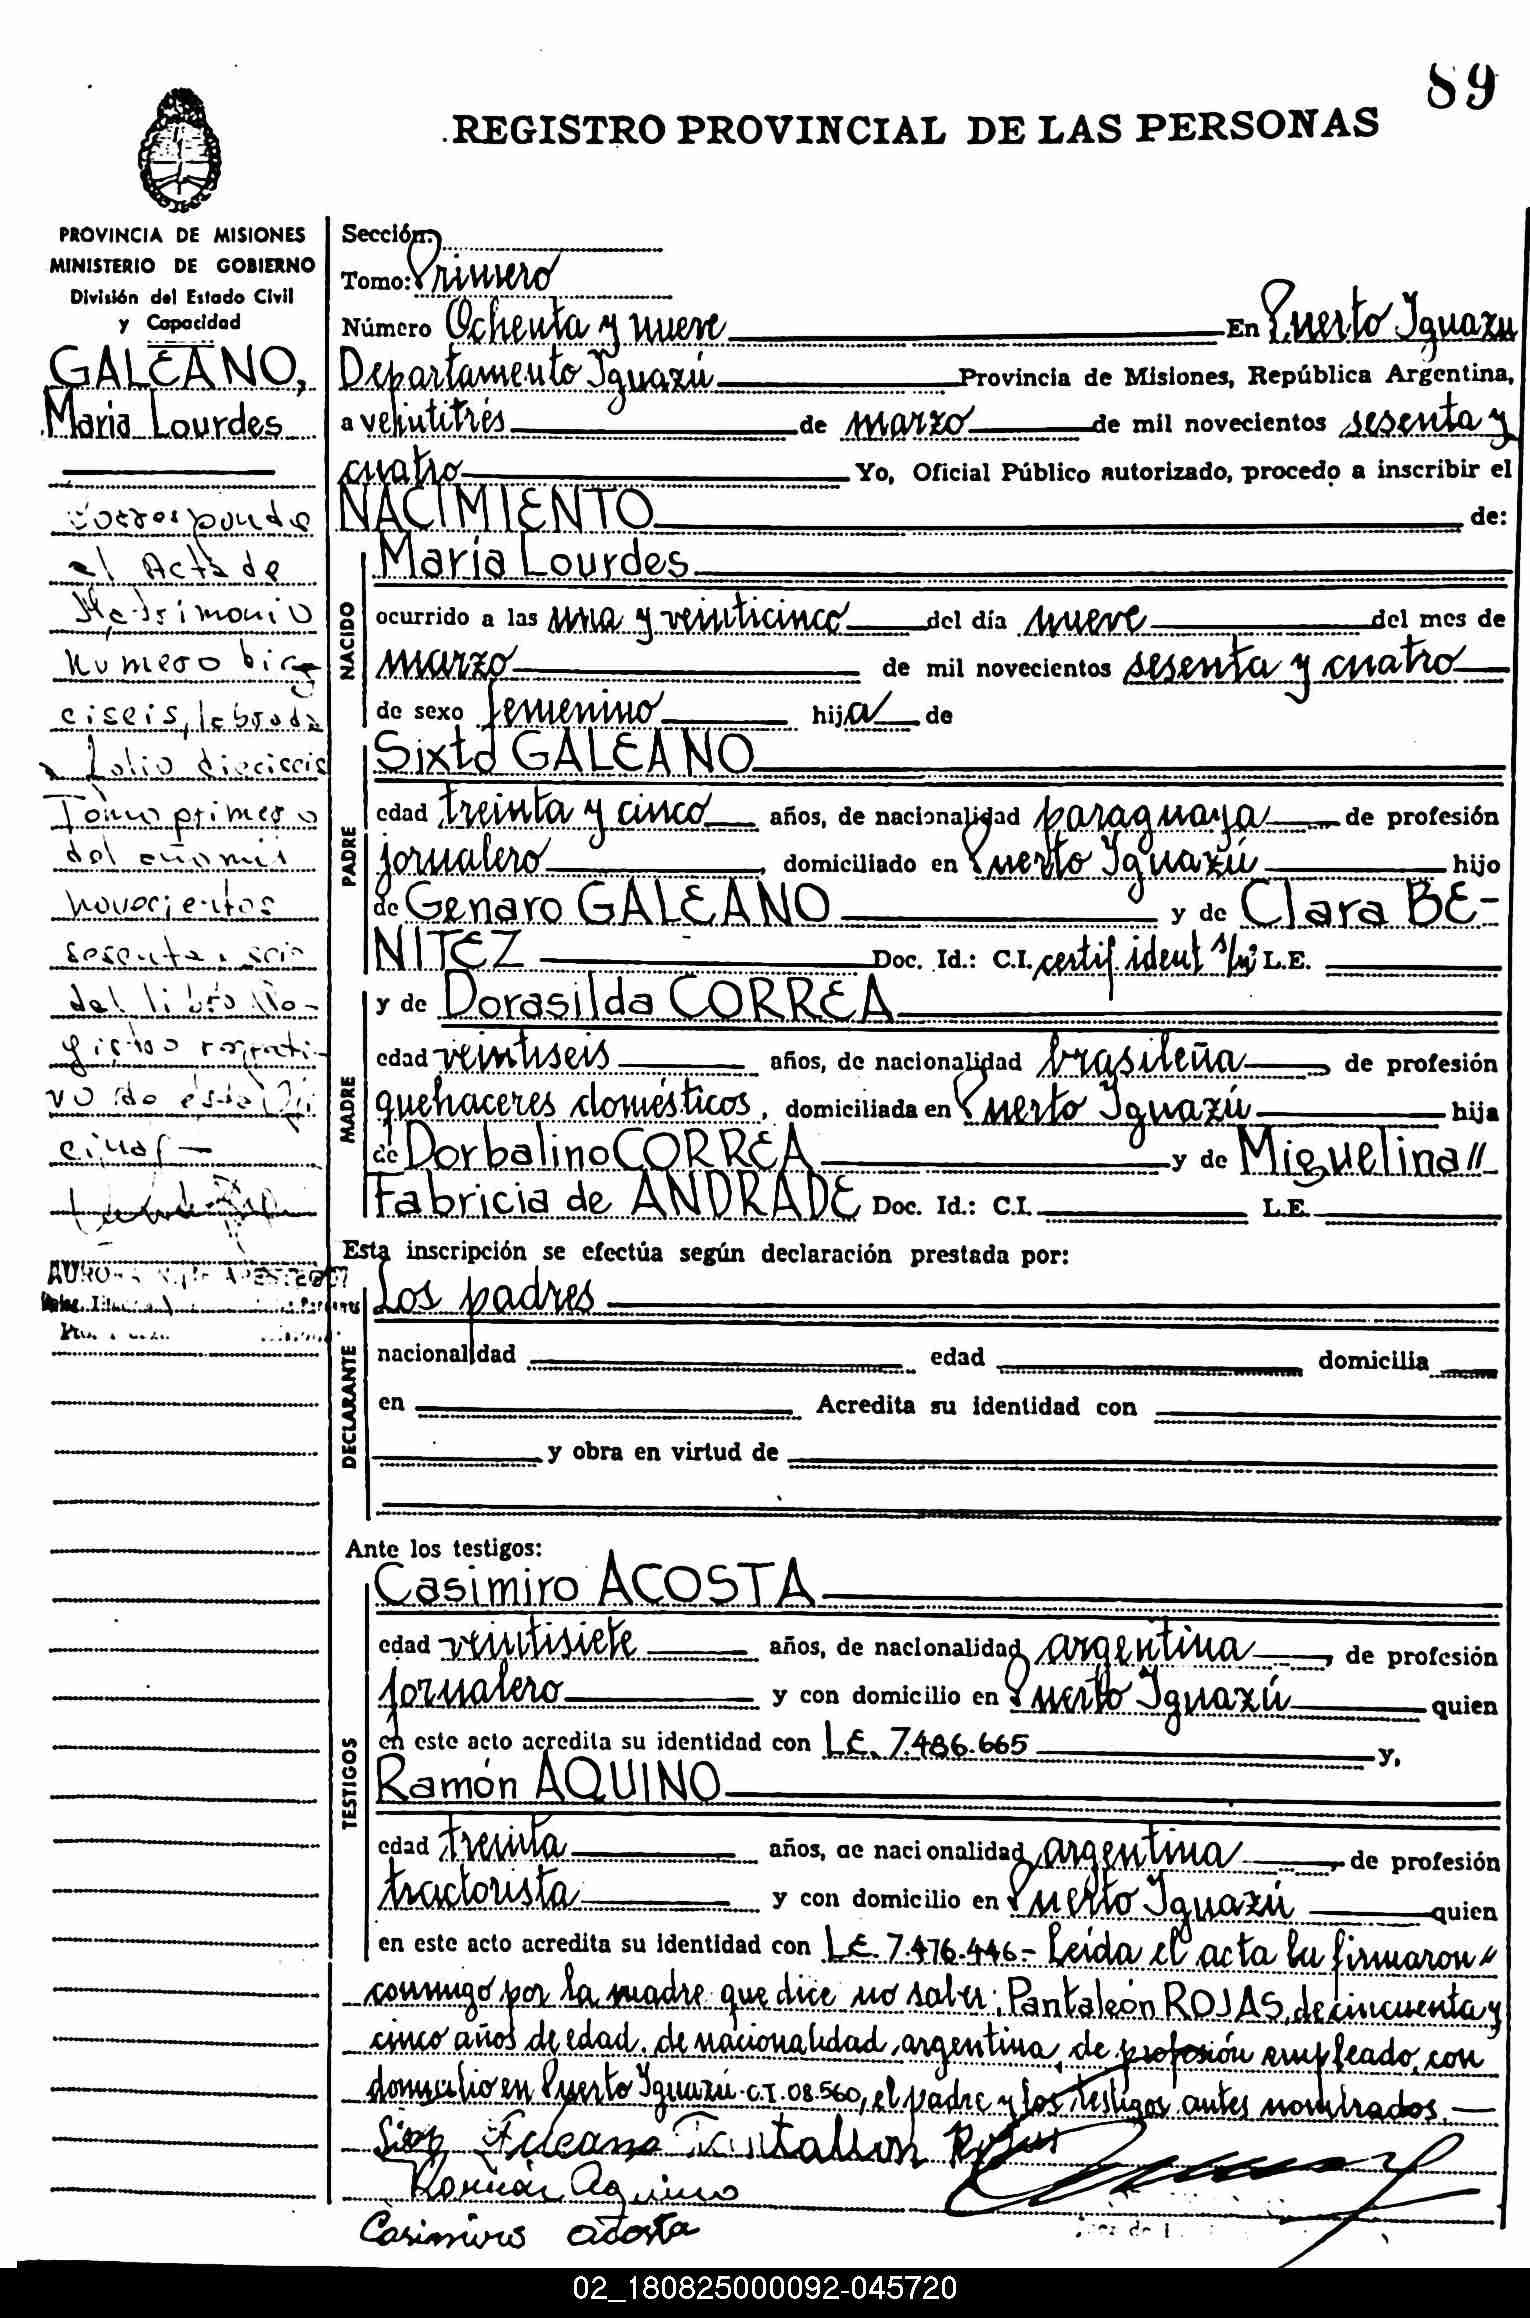 89
REGISTRO PROVINCIAL DE LAS PERSONAS
PROVINCIA DE MISIONES
MINISTERIO DE GOBIERNO
División del Estado Civil
y Capacidad
GALEANO,
Maria Lourdes
Corresponde
al Acta de
Matrimonio
numero
ciseis, labrada
a folio dieciseis
Tomo primero
del año mil
novecientos
sesenta y seis
del libro Re-
gistro respecti-
vo de esta Ofi
cina.-
Sección:
Tomo: Primero
Número Ochenta y nueve En Puerto Iguazu
Departamento Iguazú Provincia de Misiones, República Argentina,
a veintitrés de marzo de mil novecientos sesenta y
cuatro Yo, Oficial Público autorizado, procedo a inscribir el
NACIMIENTO de:
NACIDO
María Lourdes
ocurrido a las una y veinticinco del día nueve del mes de
marzo de mil novecientos sesenta y cuatro
de sexo femenino hija de
PADRE
Sixto GALEANO
edad treinta y cinco años, de nacionalidad paraguaya de profesión
jornalero, domiciliado en Puerto Iguazú hijo
de Genaro GALEANO y de Clara BE-
NITEZ Doc. Id.: C.I. certif. ident s/n L.E.
MADRE
y de Dorasilda CORREA
edad veintiseis años, de nacionalidad brasileña, de profesión
quehaceres domésticos, domiciliada en Puerto Iguazú hija
de Dorbalino CORREA y de Miguelina //
Fabricia de ANDRADE Doc. Id.: C.I. L.E.
Esta inscripción se efectúa según declaración prestada por:
DECLARANTE
Los padres
nacionalidad edad domicilia
en Acredita su identidad con
y obra en virtud de
Ante los testigos:
TESTIGOS
Casimiro ACOSTA
edad veintisiete años, de nacionalidad argentina, de profesión
jornalero y con domicilio en Puerto Iguazú quien
en este acto acredita su identidad con L.E. 7.486.665 y,
Ramón AQUINO
edad treinta años, de nacionalidad argentina, de profesión
tractorista y con domicilio en Puerto Iguazú quien
en este acto acredita su identidad con L.E. 7.476.446.- Leída el acta la firmaron //
conmigo por la madre que dice no saber: Pantaleón ROJAS, de cincuenta y
cinco años de edad, de nacionalidad argentina, de profesión empleado, con
domicilio en Puerto Iguazú C.I. 08.560, el padre y los testigos antes nombrados.
Galeano Pantaleon Rojas
Ramón Aquino
Casimiro acosta
02_180825000092-045720